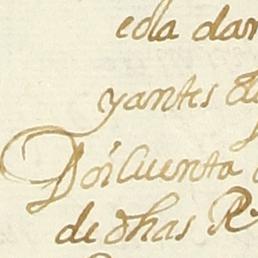 eda dar
yantes d
Doi Cuenta
de dhas R